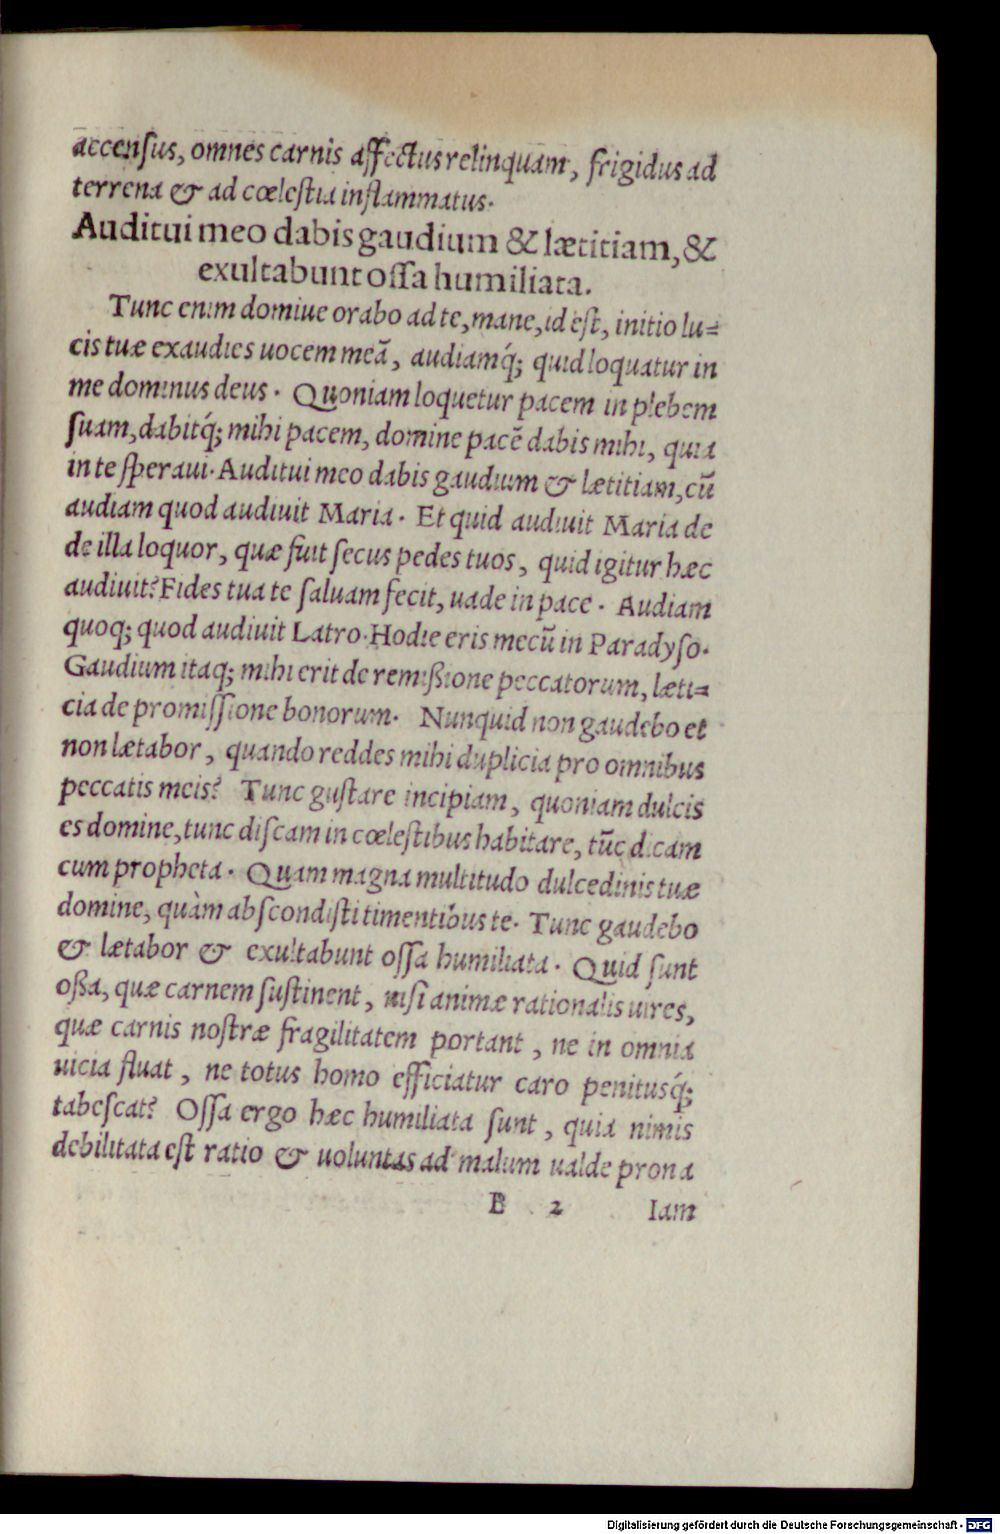 accenſus, omnes carnis affectus relinquam, frigidus ad
terrena & ad cœleſtia inflammatus.
Auditui meo dabis gaudium & lætitiam, &
exultabunt oſſa humiliata.
Tunc enim domiue orabo ad te, mane, id eſt, initio lu-
cis tuæ exaudies uocem meā, audiamq́; quid loquatur in
me dominus deus. Quoniam loquetur pacem in plebem
ſuam, dabitq́; mihi pacem, domine pacē dabis mihi, quia
in te ſperaui. Auditui meo dabis gaudium & lætitiam, cū
audiam quod audiuit Maria. Et quid audiuit Maria de
de illa loquor, quæ fuit ſecus pedes tuos, quid igitur hæc
audiuit? Fides tua te ſaluam fecit, uade in pace. Audiam
quoq; quod audiuit Latro. Hodie eris mecū in Paradyſo.
Gaudium itaq; mihi erit de remißione peccatorum, læti-
cia de promiſſione bonorum. Nunquid non gaudebo et
non lætabor, quando reddes mihi duplicia pro omnibus
peccatis meis? Tunc guſtare incipiam, quoniam dulcis
es domine, tunc diſcam in cœleſtibus habitare, tūc dicam
cum propheta. Quam magna multitudo dulcedinis tuæ
domine, quàm abſcondiſti timentibus te. Tunc gaudebo
& lætabor & exultabunt oſſa humiliata. Quid ſunt
oßa, quæ carnem ſuſtinent, niſi animæ rationalis uires,
quæ carnis noſtræ fragilitatem portant, ne in omnia
uicia fluat, ne totus homo efficiatur caro penitusq́;
tabeſcat? Oſſa ergo hæc humiliata ſunt, quia nimis
debilitata eſt ratio & uoluntas ad malum ualde prona
B 2 Iam
Digitalisierung gefördert durch die Deutsche Forschungsgemeinschaft - DFG